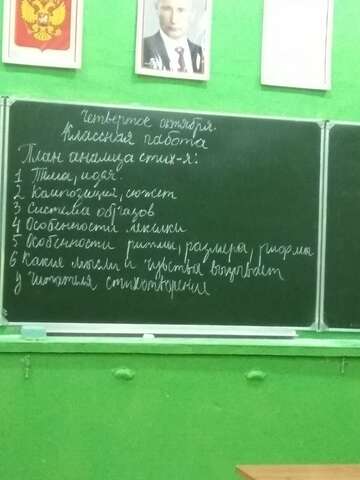 Четвертое октября.
Классная работа
План анализа стих-я:
1 Тема, идея.
2 Композиция, сюжет
3 Система образов
4 Особенности лексики
5 Особенности ритмы, размера, рифмы
6 Какие мысли и чувства вызывает
у читателя стихотворение